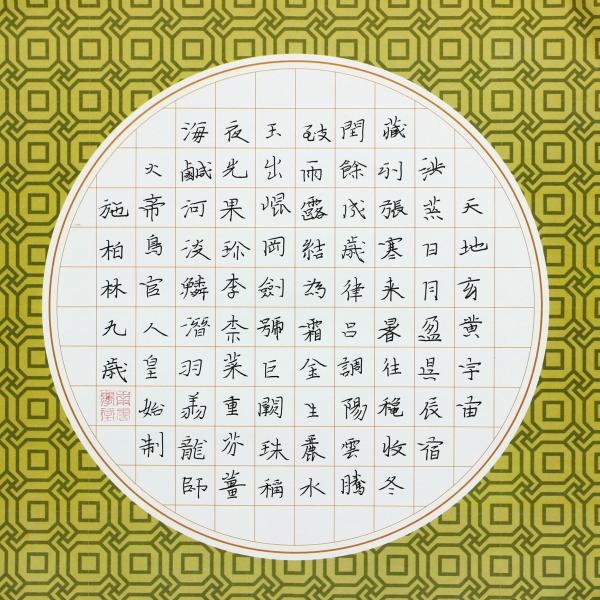 天地玄黄宇宙
洪荒日月盈昃辰宿
藏列張寒来暑往穐收冬
閏餘成歳律呂調陽雲騰
致雨露結為霜金生麗水
玉出崐岡劍號巨闕珠稱
夜光果珍李柰菜重芥薑
海鹹河淡鱗潛羽翔龍師
火帝鳥官人皇始制
施柏林九歳